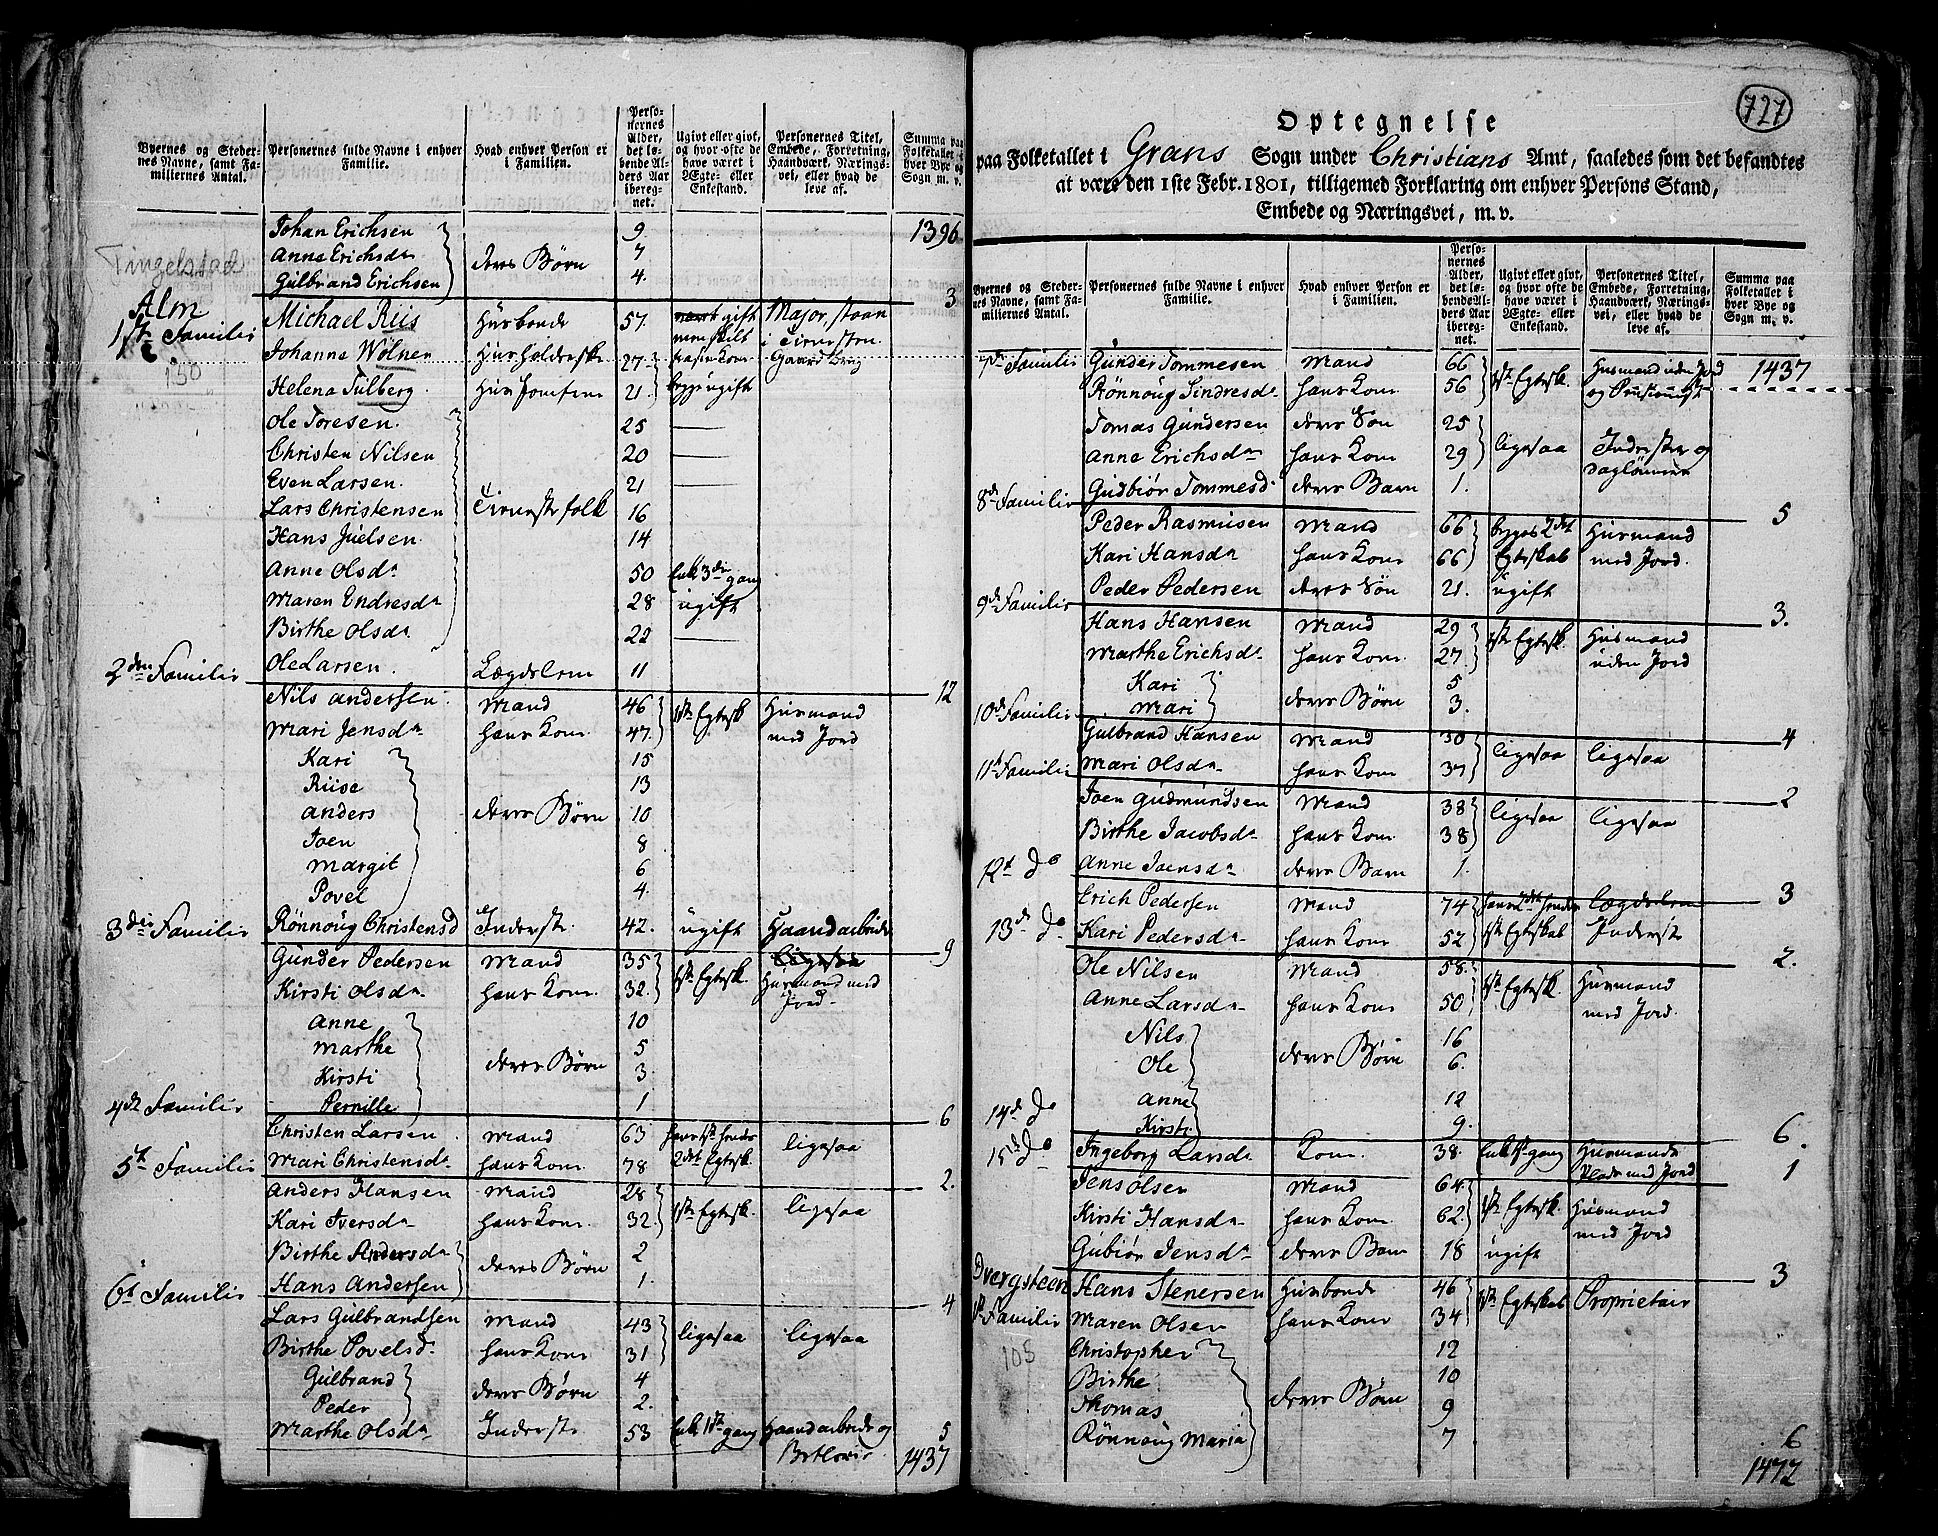 Byernes og Steder-
nes Navne, samt Fa-
miliernes Antal.
Personernes fulde Navne i enhver
Familie.
Hvad enhver Person er
i Familien.
Perso-
nernes
Alder,
det lø-
bende Al-
ders Aar
iberegnet.
Ugivt eller givt,
og hvor ofte de
have været i
Ægte- eller
Enkestand.
Personernes Titel,
Embede, Forretning,
Haandværk, Nærings-
vei, eller hvad de
leve af.
Summa paa
Folketallet i
hver Bye og
Sogn m. v.
Johan Erichsen 9. 1396
Tingelstad Anne Erichsdr deres Børn 7
Gulbrand Erichsen 4. 3
Alm
1ste Familie Michael Riis Husbonde 57. gift Major, staar
Johanne Wolner Husholderske 27
150
Helena Tulberg Husjomfrue 21 begge ugift
Ole Toresen. 25
Christen Nilsen 20
Even Larsen. 21
Lars Christensen Tienestefolk 16
Hans Juelsen. 14
Anne Olsdr 50 Enke 3die gang
Maren Endresdr 28 ugift
Birthe Olsdr 22
Ole Larsen. Lægdslem 11 12
2den Familie Nils Andersen Mand 46 1ste Egtesk Husmand
Mari Jensdr hans Kone 47. med Jord
Kari 15
Riise 13
Anders deres Børn 10
Joen 8
Margit 6
Povel 4.
Rønnoug Christensd Inderste. 42. ugift Haandarbeide 9
3die Familie Gunder Pedersen Mand 35 1ste Egtesk. ligesaa
Kirsti Olsdr hans Kone. 32. Husmand med
Jord.
Anne 10
Marthe deres Børn 5
Kirsti 3.
Pernille 1 6
4de Familie Christen Larsen Mand 63 ligesaa
Mari Christensdr hans Kone. 78 2det Egtesk. 2.
5te Familie Anders Hansen Mand 28 1ste Egtesk. ligesaa
Kari Iversdr hans Kone. 32.
Birthe Andersdr deres Børn 2
Hans Andersen 1. 4
6te Familie Lars Gulbrandsen Mand 43 ligesaa ligesaa
Birthe Povelsdr hans Kone 31
Gulbrand deres Børn 4
Peder 2.
Marthe Olsdr Inderste 53 Enke 1ste gang Haandarbeide og 5
1437
727
Optegnelse
paa Folketallet i Grans Sogn under Christians Amt, saaledes som det befandtes
at være den 1ste Febr. 1801, tilligemed Forklaring om enhver Persons Stand,
Embede og Næringsvei, m. v.
Byernes og Steder-
nes Navne, samt Fa-
miliernes Antal.
Personernes fulde Navne i enhver
Familie.
Hvad enhver Person er
i Familien.
Perso-
nernes
Alder,
det lø-
bende Al-
ders Aar
iberegnet.
Ugivt eller givt,
og hvor ofte de
have været i
Ægte- eller
Enkestand.
Personernes Titel,
Embede, Forretning,
Haandværk, Nærings-
vei, eller hvad de
leve af.
Summa paa
Folketallet i
hver Bye og
Sogn m. v.
7de Familie Gunder Tommesen Mand 66 1ste Egtesk. Husmand uden Jord 1437
Rønnoug Sindresdr hans Kone 56
Tomas Gundersen deres Søn 25 ligesaa Inderste og
Anne Erichsdr hans Kone 29 Dagleiner
Gudbiør Tommesd. deres Barn 1. 5
8de Familie Peder Rasmusen Mand 66 begges 2det Husmand
Kari Hansdr hans Kone 66 Egteskab med Jord.
Peder Pedersen deres Søn 21. ugift 3.
9de Familie Hans Hansen Mand 29 1ste Egtesk. Husmand
Marthe Erichsdr hans Kone. 27 uden Jord
Kari deres Børn 5
Mari 3. 4
10de Familie Gulbrand Hansen Mand 30 ligesaa ligesaa
Mari Olsdr hans Kone 37 2
11te Familie Joen Gudmundsen Mand 38 ligesaa ligesaa
Birthe Jacobsdr hans Kone 38
Anne Joensdr deres Barn 1. 3
12te do Erich Pedersen Mand 74 Lægdslem
Kari Pedersdr hans Kone 52 1ste Egteskab Inderste 2.
13de do Ole Nilsen Mand 58. 1ste Egtesk. Husmand
Anne Larsdr hans Kone 50 med Jord.
Nils deres Børn 16
Ole 6.
Anne 12
Kirsti 9. 6.
14de do Ingeborg Larsdr Kone 38. Enke 1ste gang Husmands
Plads med Jord 1
15de do Jens Olsen Mand 64. 1ste Egtesk. Husmand
Kirsti Hansdr hans Kone 62. med Jord
Gubiør Jensdr deres Barn 18 ugift 3
Dvergsteen Hans Stenersen Husbonde 46 1ste Egteskab Proprietair
1ste Familie Maren Olsen hans Kone 34
105 Christopher 12
Birthe deres Børn 10
Thomas 9
Rønnoug Maria 7 6
1472